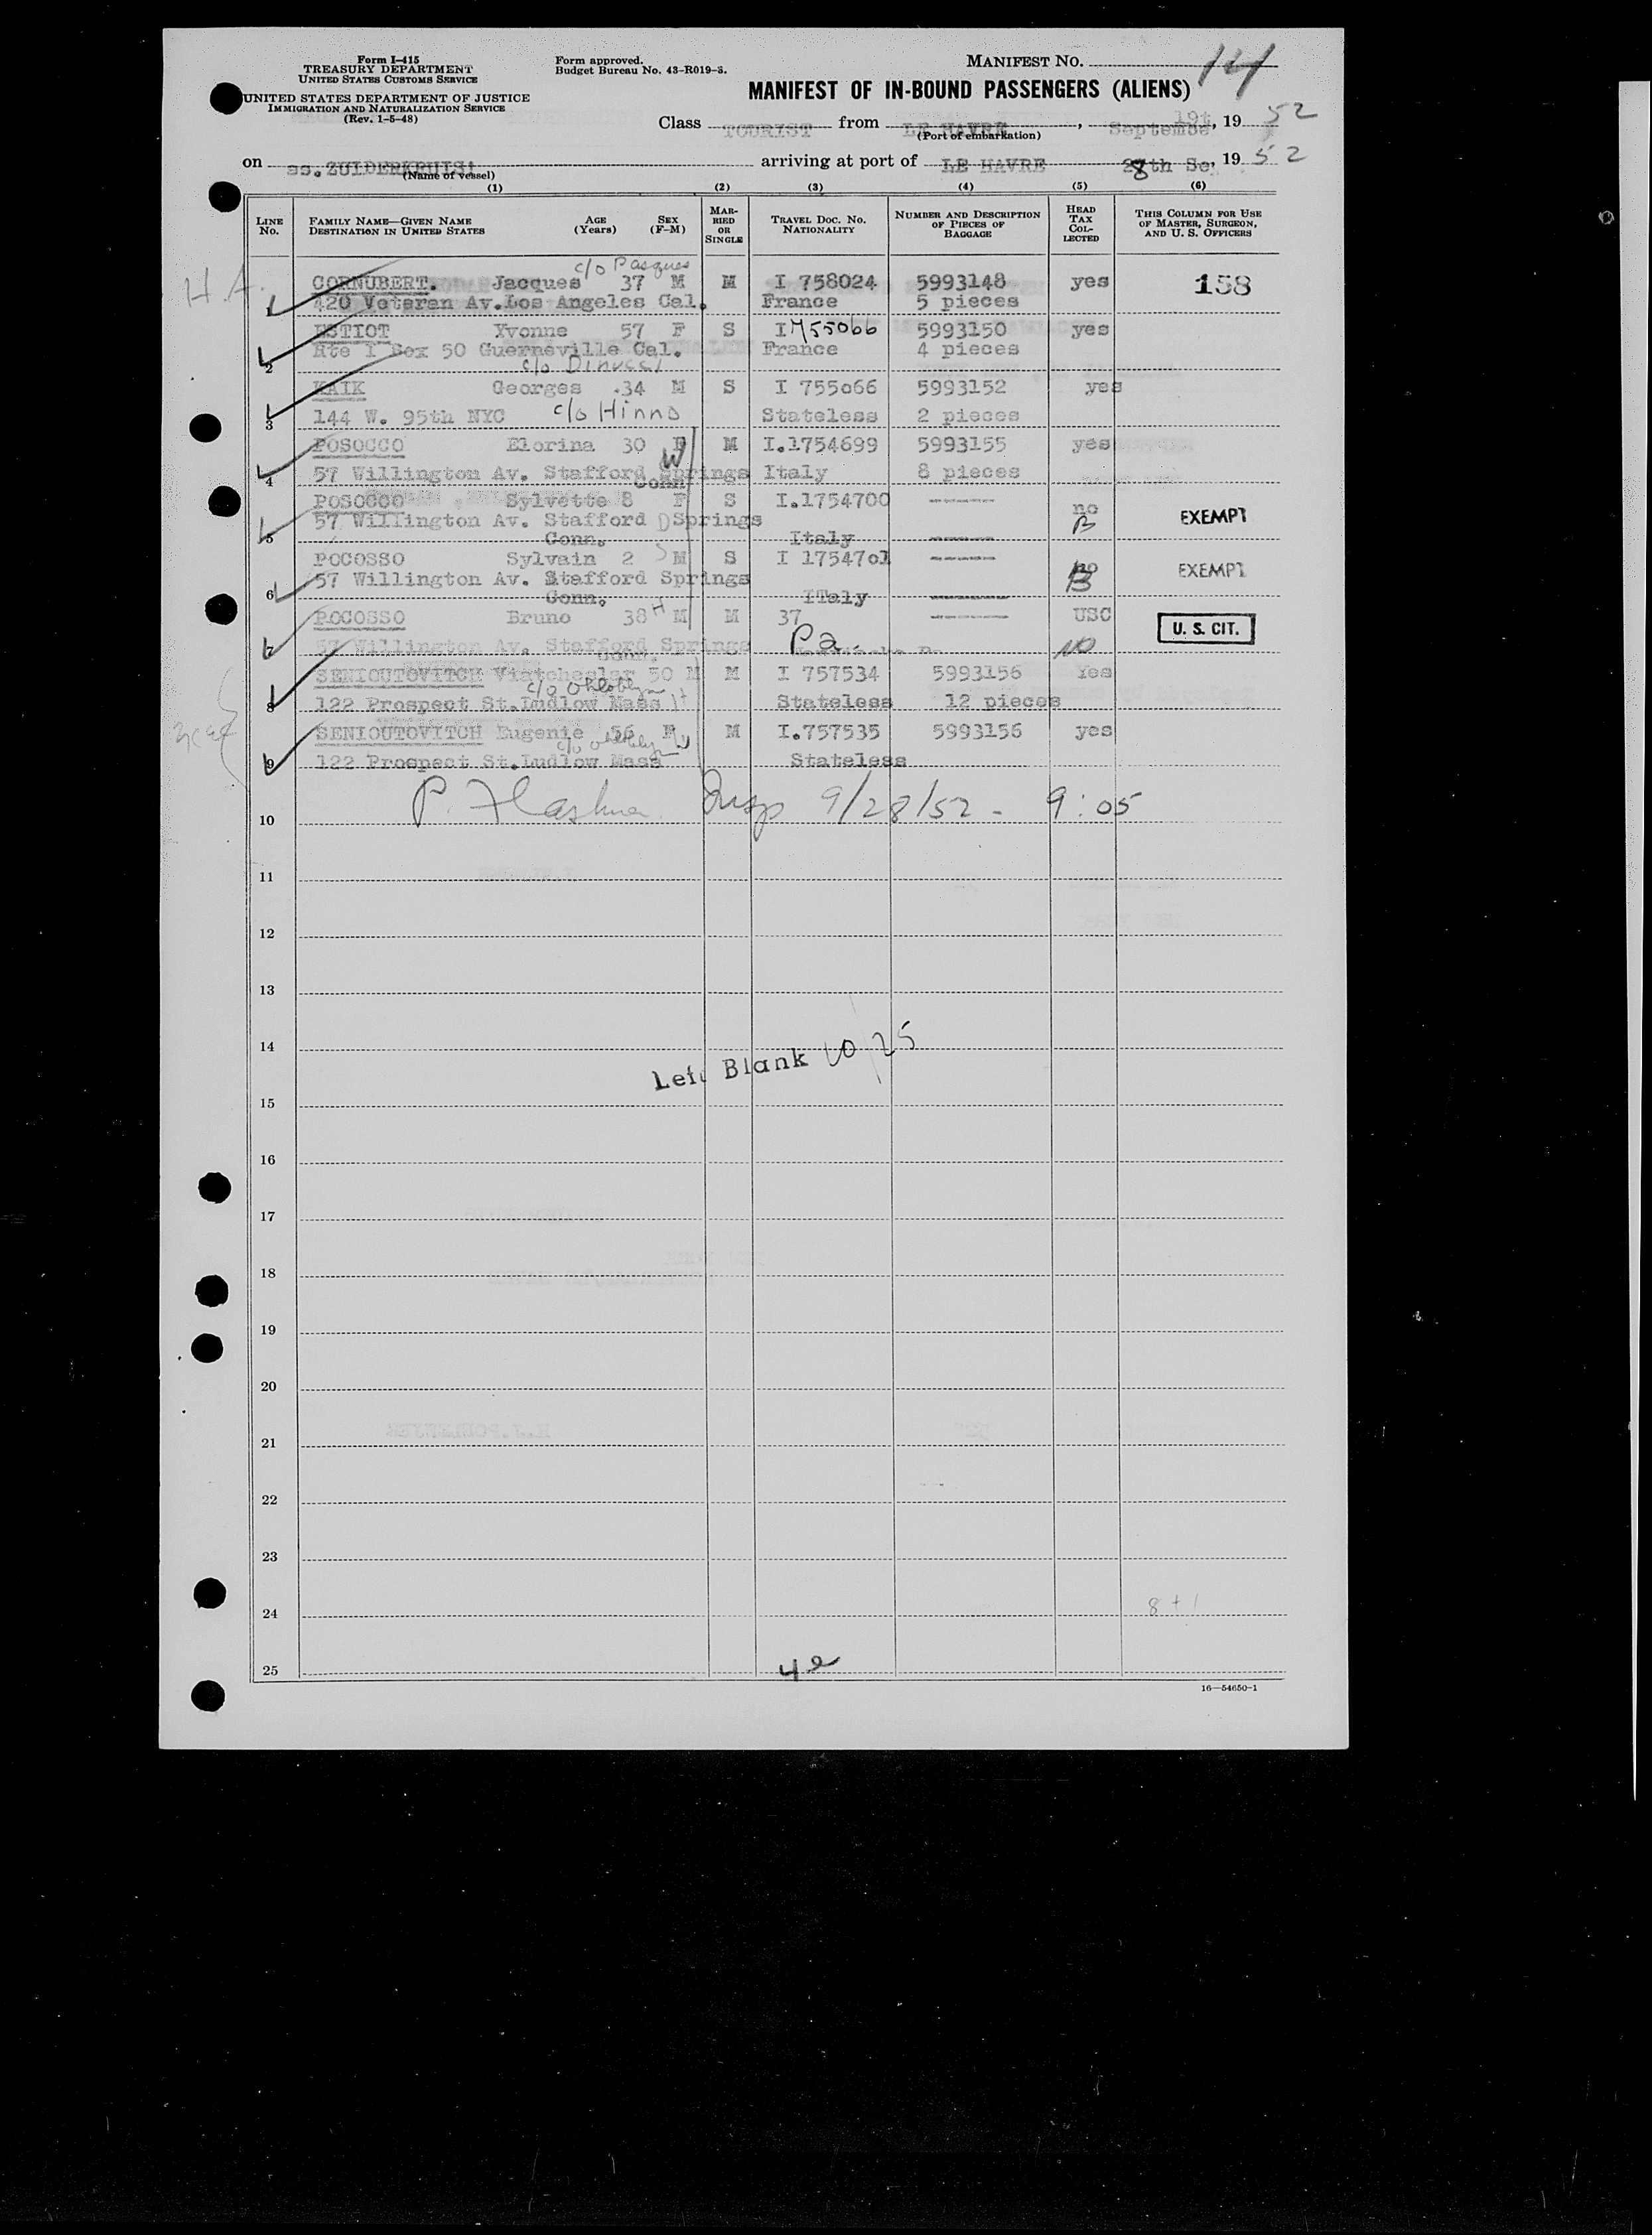 Form I-415
TREASURY DEPARTMENT
UNITED STATES CUSTOMS SERVICE
UNITED STATES DEPARTMENT OF JUSTICE
IMMIGRATION AND NATURALIZATION SERVICE
(Rev. 1-5-48)
Form approved.
Budget Bureau No. 43-R019-3.
MANIFEST NO. 14
MANIFEST OF IN-BOUND PASSENGERS (ALIENS)
Class TOURIST from LE HAVRE, September 19t, 19 52
(Port of embarkation)
on ss. ZUIDERKRUIS arriving at port of LE HAVRE 28th Se, 19 52
(Name of vessel)
(1) (2) (3) (4) (5) (6)
LINE NO. FAMILY NAME—GIVEN NAME DESTINATION IN UNITED STATES AGE (Years) SEX (F-M) MARRIED OR SINGLE TRAVEL DOC. NO. NATIONALITY NUMBER AND DESCRIPTION OF PIECES OF BAGGAGE HEAD TAX COLLECTED THIS COLUMN FOR USE OF MASTER, SURGEON, AND U. S. OFFICERS
c/o Pasques
H.A. CORNUBERT. Jacques 37 M M I 758024 5993148 yes 158
1 420 Veteran Av. Los Angeles Cal. France 5 pieces
ESTIOT Yvonne 57 F S I 755066 5993150 yes
2 Rte 1 Box 50 Guerneville Cal. France 4 pieces
c/o Dinucci
KAIK Georges 34 M S I 755066 5993152 yes
3 144 W. 95th NYC c/o Hinno Stateless 2 pieces
POSOCCO Elorina 30 F W M I.1754699 5993155 yes
4 57 Willington Av. Stafford Springs Italy 8 pieces
Conn
POSOCCO Sylvette 8 F S I.1754700 ------ no
57 Willington Av. Stafford D Springs B EXEMPT
5 Conn. Italy
POCOSSO Sylvain 2 S M S I 1754701 ------ no
57 Willington Av. Stafford Springs B EXEMPT
6 Conn. ITaly
POCOSSO Bruno 38 H M M 37 ------ USC U. S. CIT.
7 57 Willington Av. Stafford Springs Pa. NO
Conn.
SENIOUTOVITCH Viatcheslar 50 M M I 757534 5993156 Yes
8 122 Prospect St. Ludlow Mass H Stateless 12 pieces
SENIOUTOVITCH Eugenie 56 F W M I.757535 5993156 yes
9 122 Prospect St. Ludlow Mass Stateless
Insp 9/28/52 - 9:05
10
11
12
13
14
Left Blank 10/25
15
16
17
18
19
20
21
22
23
24 8+1
25
16—54650-1